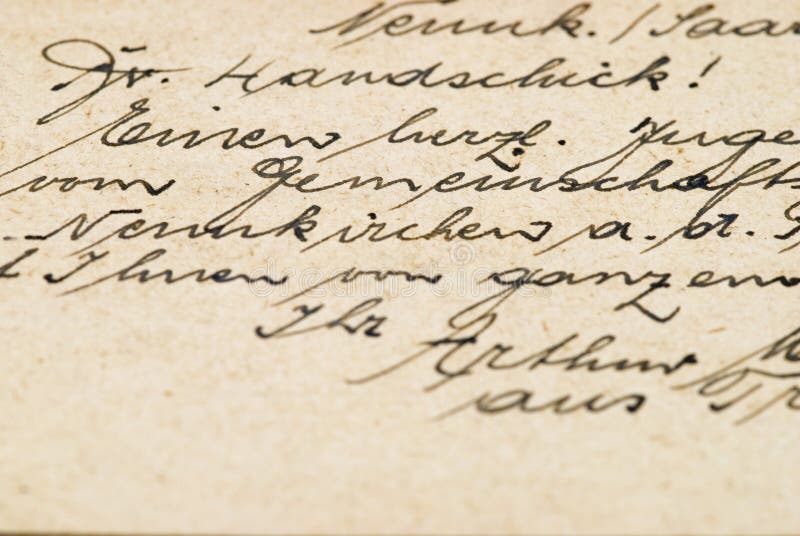 Neunk. / Saar
Dr. Handschick!
Einen herzl. Juge
vom Gemeinschafts
Neunkirchen a. d. S
t Ihnen von ganzem
Ihr
Arthur
aus Tr